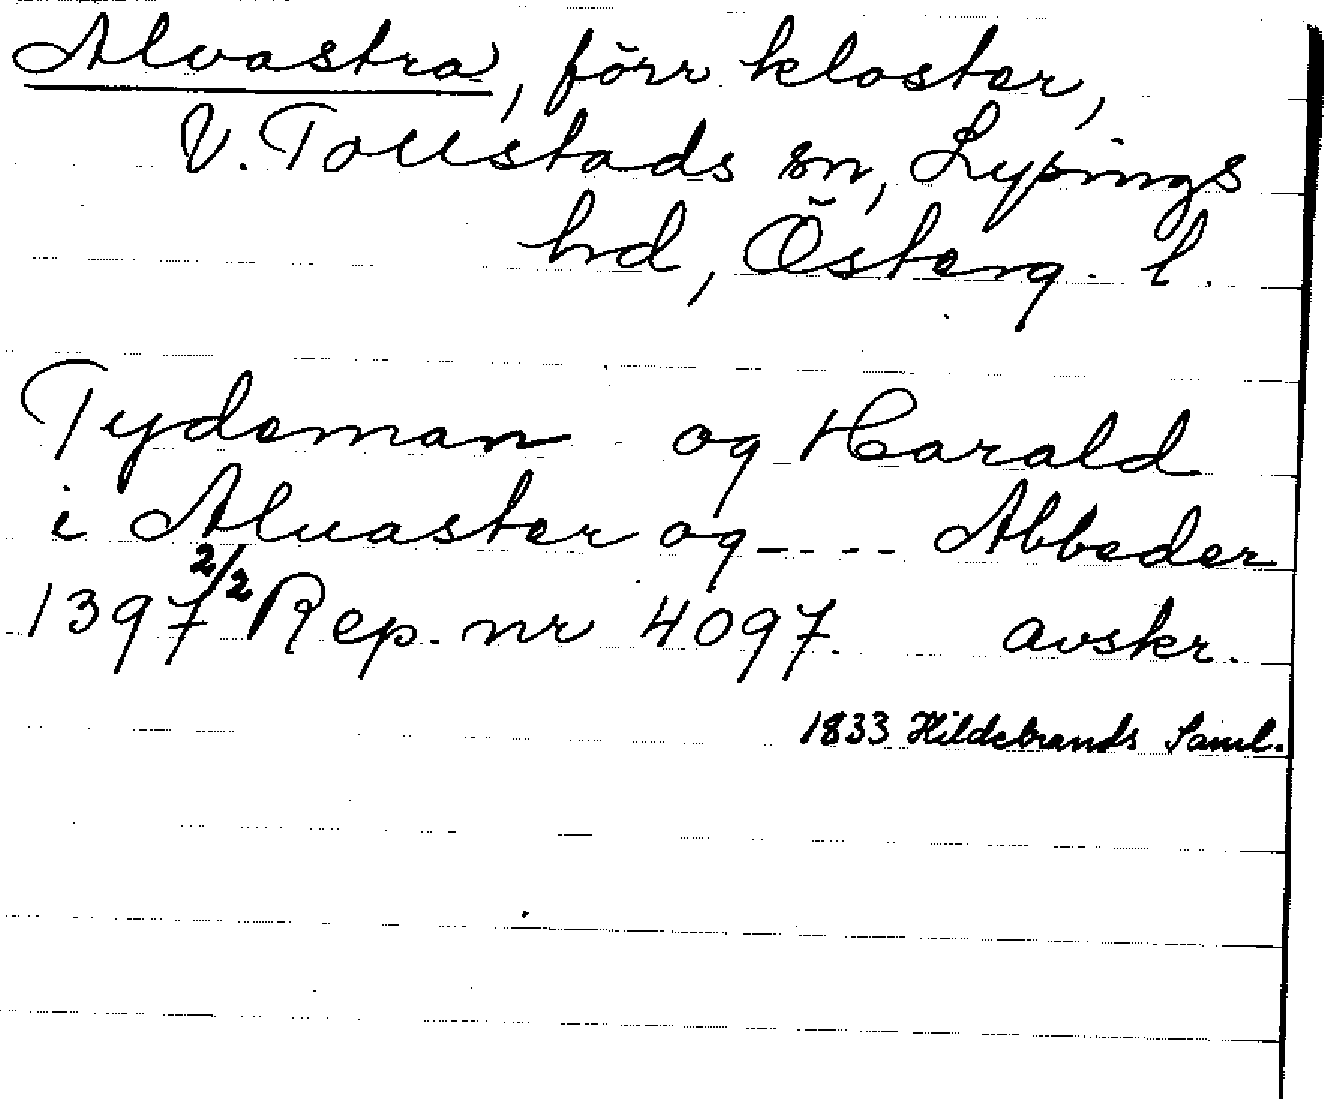 Alvastra, förr kloster,
V. Tollstads sn, Lysings
hd, Österg. l.
Tydeman og Harald
i Aluaster og ---- Abbeder
1397 2/2 Rep. nr 4097. avskr.
1833 Hildebrands Saml.